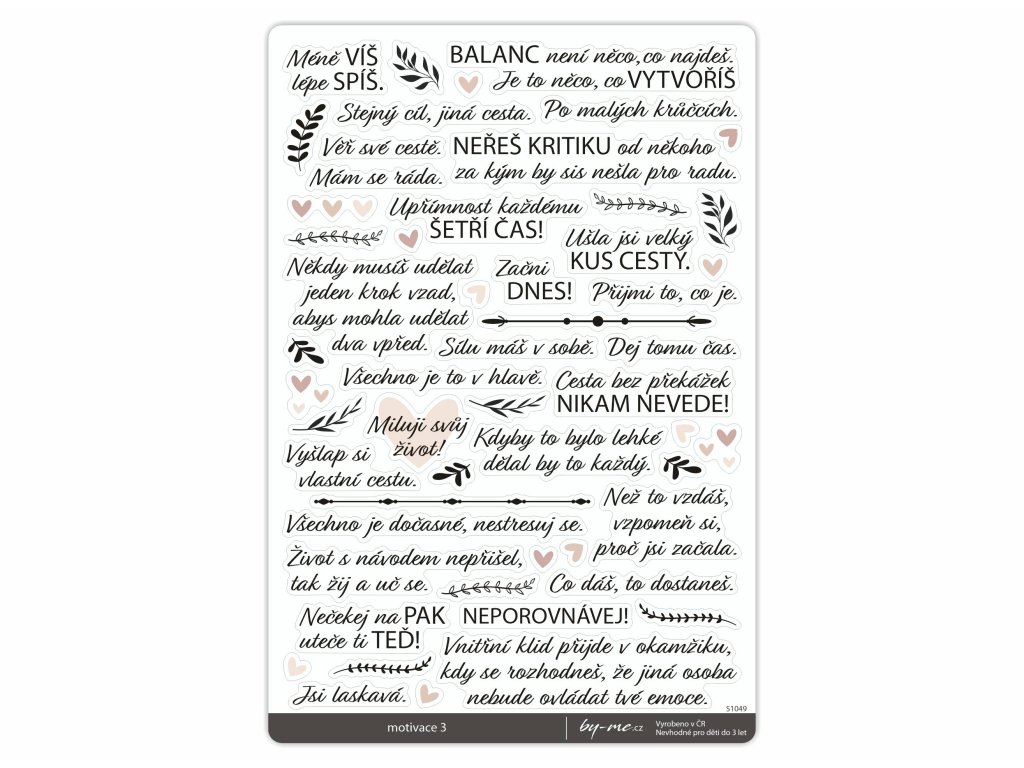 Méně VÍŠ
lépe SPÍŠ.
BALANC není něco, co najdeš.
Je to něco, co VYTVOŘÍŠ
Stejný cíl, jiná cesta.
Po malých krůčcích.
Věř své cestě.
NEŘEŠ KRITIKU od někoho
za kým by sis nešla pro radu.
Mám se ráda.
Upřímnost každému
ŠETŘÍ ČAS!
Ušla jsi velký
KUS CESTY.
Někdy musíš udělat
jeden krok vzad,
abys mohla udělat
dva vpřed.
Začni
DNES!
Přijmi to, co je.
Sílu máš v sobě.
Dej tomu čas.
Všechno je to v hlavě.
Cesta bez překážek
NIKAM NEVEDE!
Miluji svůj
život!
Kdyby to bylo lehké
dělal by to každý.
Vyšlap si
vlastní cestu.
Než to vzdáš,
vzpomeň si,
proč jsi začala.
Všechno je dočasné, nestresuj se.
Život s návodem nepřišel,
tak žij a uč se.
Co dáš, to dostaneš.
Nečekej na PAK
uteče ti TEĎ!
NEPOROVNÁVEJ!
Vnitřní klid přijde v okamžiku,
kdy se rozhodneš, že jiná osoba
nebude ovládat tvé emoce.
Jsi laskavá.
S1049
motivace 3
by-me.cz
Vyrobeno v ČR
Nevhodné pro děti do 3 let